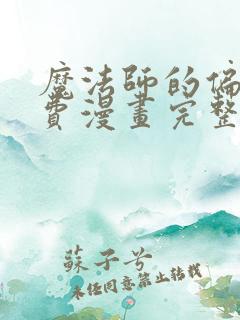 魔法師的偏
費漫畫完整
蘇子兮
未経同意禁止转载